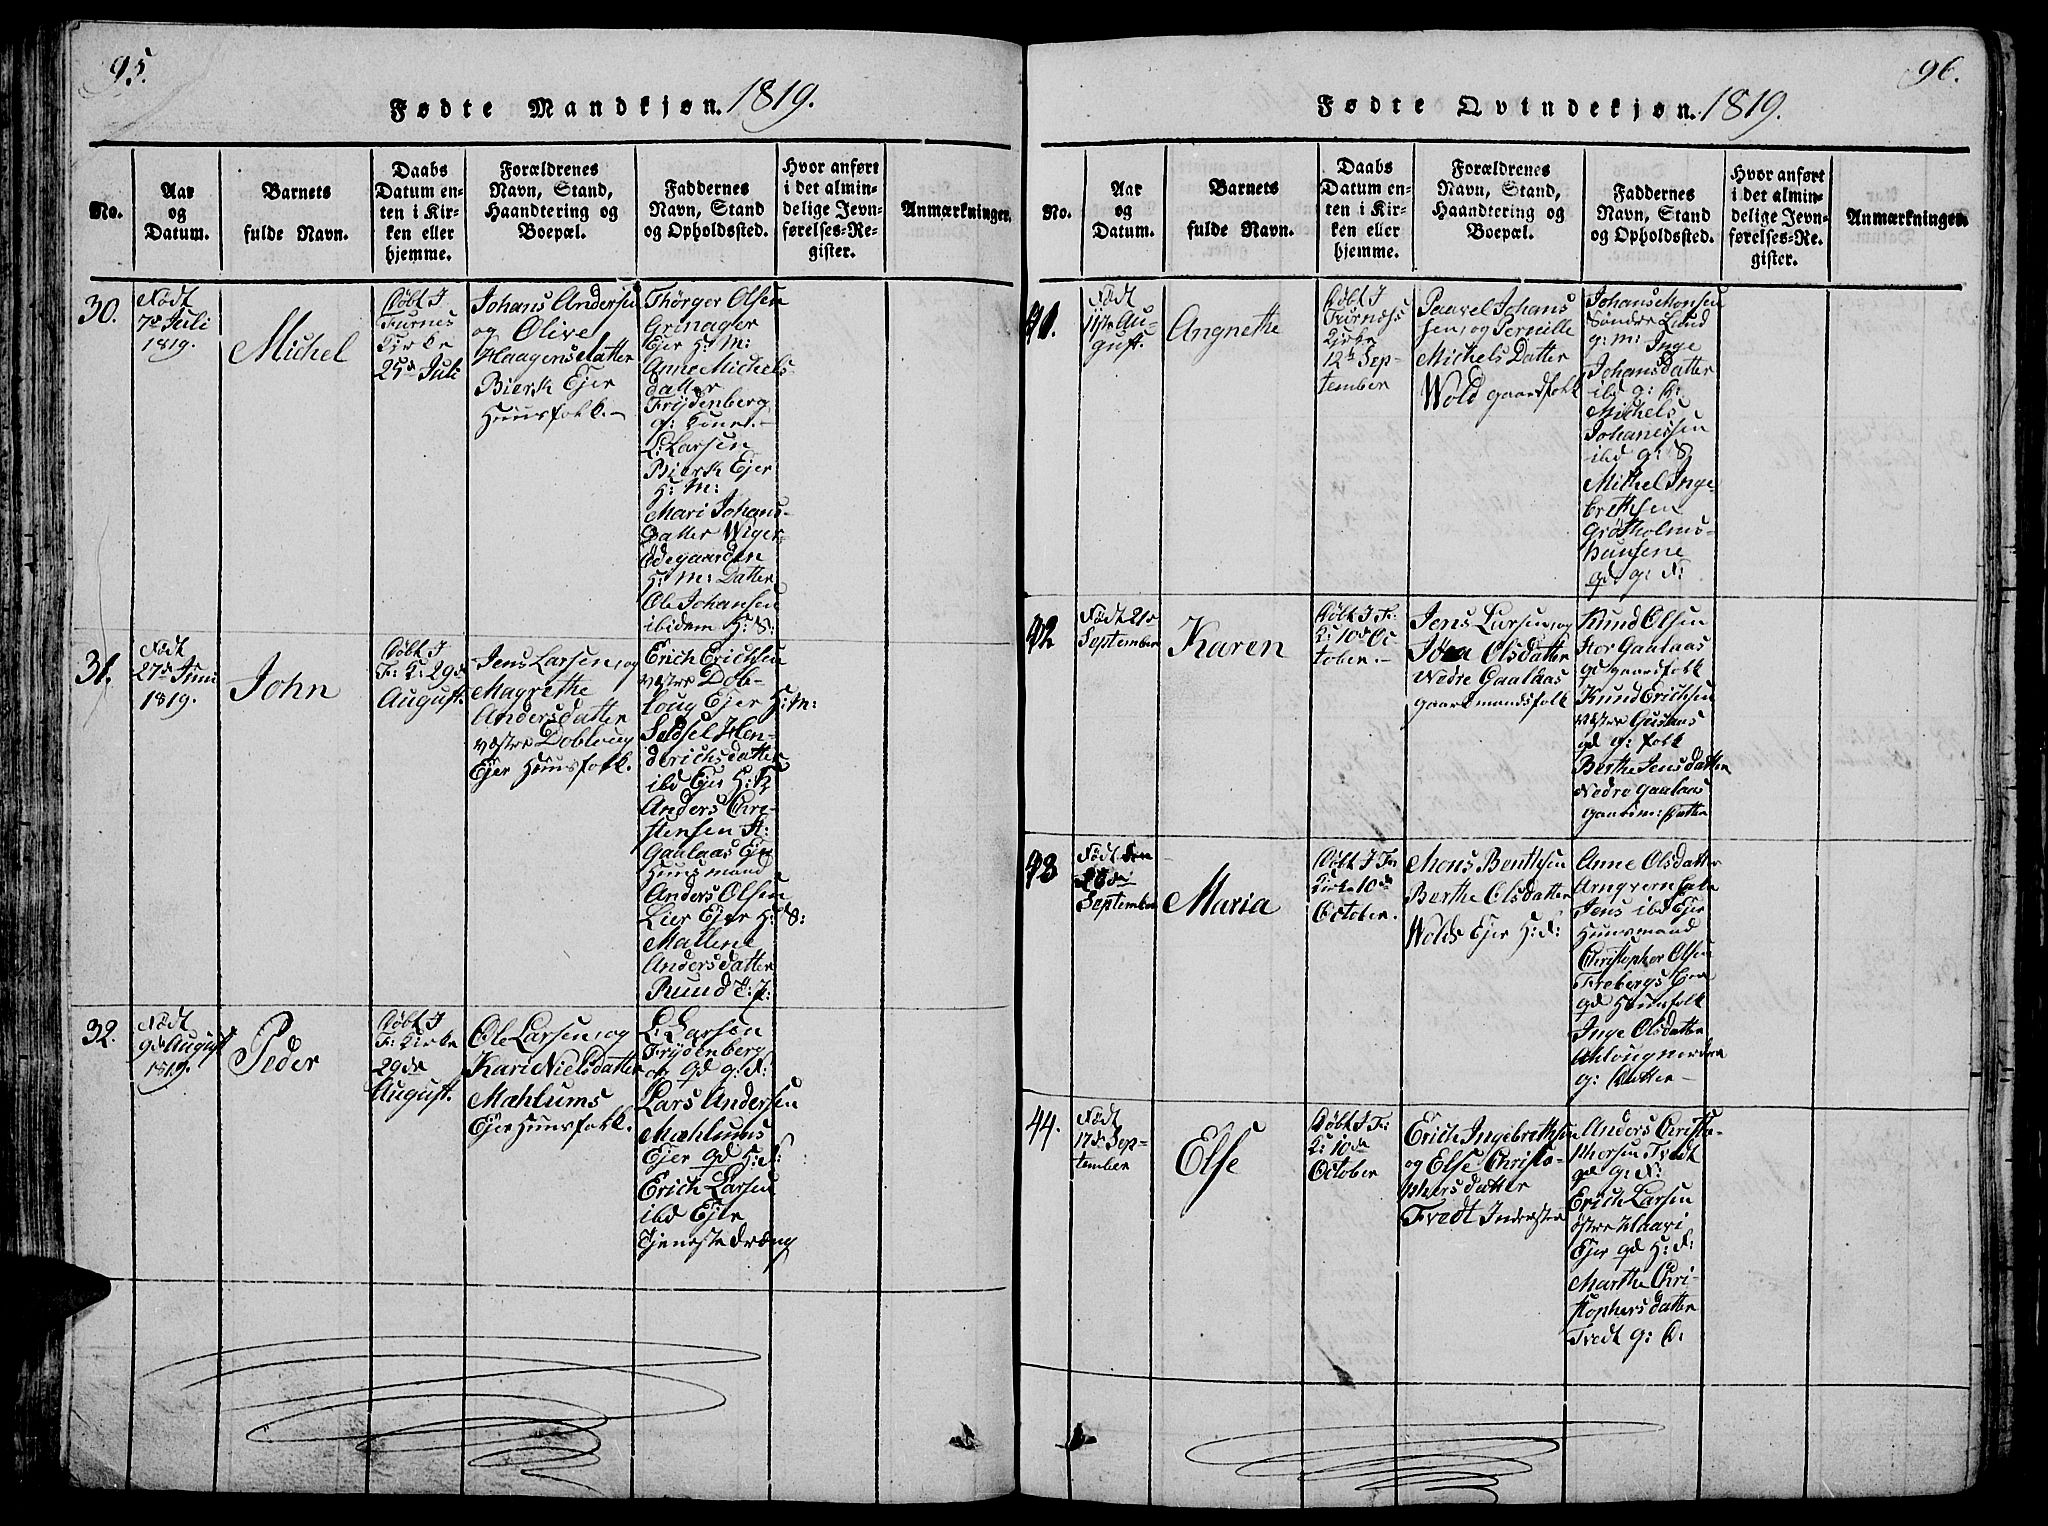 95.
Fødte Mandkjøn. 1819.
No.
Aar
og
Datum.
Barnets
fulde Navn.
Daabs
Datum en-
ten i Kir-
ken eller
hjemme.
Forældrenes
Navn, Stand,
Haandtering og
Boepæl.
Faddernes
Navn, Stand
og Opholdssted.
Hvor anført
i det almin-
delige Jevn-
førelses-Re-
gister.
Anmærkninger.
30.
Født
7de Juli
1819.
Michel
Døbt I
Furnes
Kirke
25de Juli
Johans Andersen
og Olive
Haagens Datter
Bierk Ejer
Huusfolk.
Thörger Olsen
Grinager
Ejer H: M:
Anne Michels
datter
Frydenberg
g: Kone.
L: Larsen
Bierk Ejer
H: M:
Mari Johans-
Datter Wiger
Ødegaarden
H: M: Datter
Ole Johansen
ibidem H: S:
31.
Født
27de Juni
1819.
John
Døbt I
F: K: 29de
August.
Jens Larsen, og
Magrethe
Andersdatter
væstre Dobloug
Ejer Huusfolk.
Erich Erichsen
væstre Dob-
loug Ejer H: M:
Sidsel Hen-
derichsdatter
ibd Ejer H: K
Anders Chri-
stensen St:
Gaalaas Ejer
Huusmand
Anders Olsen
Lier Ejer H: S:
Mallene
Andersdatter
Ruud T: P:
32.
Født
9de August
1819.
Peder
Døbt I
F: Kirke
29de
August.
Ole Larsen, og
Kari Nielsdatter
Mæhlums
Ejer Huusfolk.
L: Larsen
Frydenberg
gd g: f:
Lars Andersen
Mæhlums
Ejer gd H: f:
Erich Larsen
ibd Ejer
Tjeneste dræng
96.
Fødte Qvindekjøn. 1819.
No.
Aar
og
Datum.
Barnets
fulde Navn.
Daabs
Datum en-
ten i Kir-
ken eller
hjemme.
Forældrenes
Navn, Stand,
Haandtering og
Boepæl.
Faddernes
Navn, Stand
og Opholdssted.
Hvor anført
i det almin-
delige Jevn-
førelses-Re-
gister.
Anmærkninger.
41.
Født
11te Au-
gust.
Angnethe
Døbt I
Furnæs
Kirke
12te Sep-
tember
Paavel Johans
sen, og Pernille
Michels Datter
Wold gaardfolk
Johans Monsen
Sønder Lund
g: m: Inge
Johans datter
ibd g: K:
Michels
Johanessen
ibd g: S
Mithel Inge-
brethsen
Grötholms-
hausene
gd. g: f:
42
Født 21de
September
Karen
Døbt I F:
K: 10de Oc
tober.
Jens Larsen, og
Olsdatter
Nedre Gaalaas
gaardmandsfolk
Knud Olsen
Stor Gaalaas
gd gaardfolk
Knud Erichsen
væstre Gaalaas
gd g: folk
Berthe Jensdatter
Nedre gaalaas
gaardm: datter
43
Født den
September
Maria
Døbt I F:
Kirke 10de
October.
Mons Benthsen
Berthe Olsdatter
Wolds Ejer H: f:
Anne Olsdatter
Jens ibd Ejer
Huusmand
Christopher Olsen
Frebergs Ejer
gd Huusfolk
Inge Olsdatter
g: datter
44.
Født
17de Sep-
tember
Else
Døbt I F:
K: 10de
October
Erich Ingebrethsen
og Else Christo-
phersdatter
Tredt Inderster
Anders Christo-
phersen Tredt
gd g: f:
Erich Larsen
östre Haavi
Ejer gd H: f:
Marthe Chri-
stophersdatter
Tredt g: d: